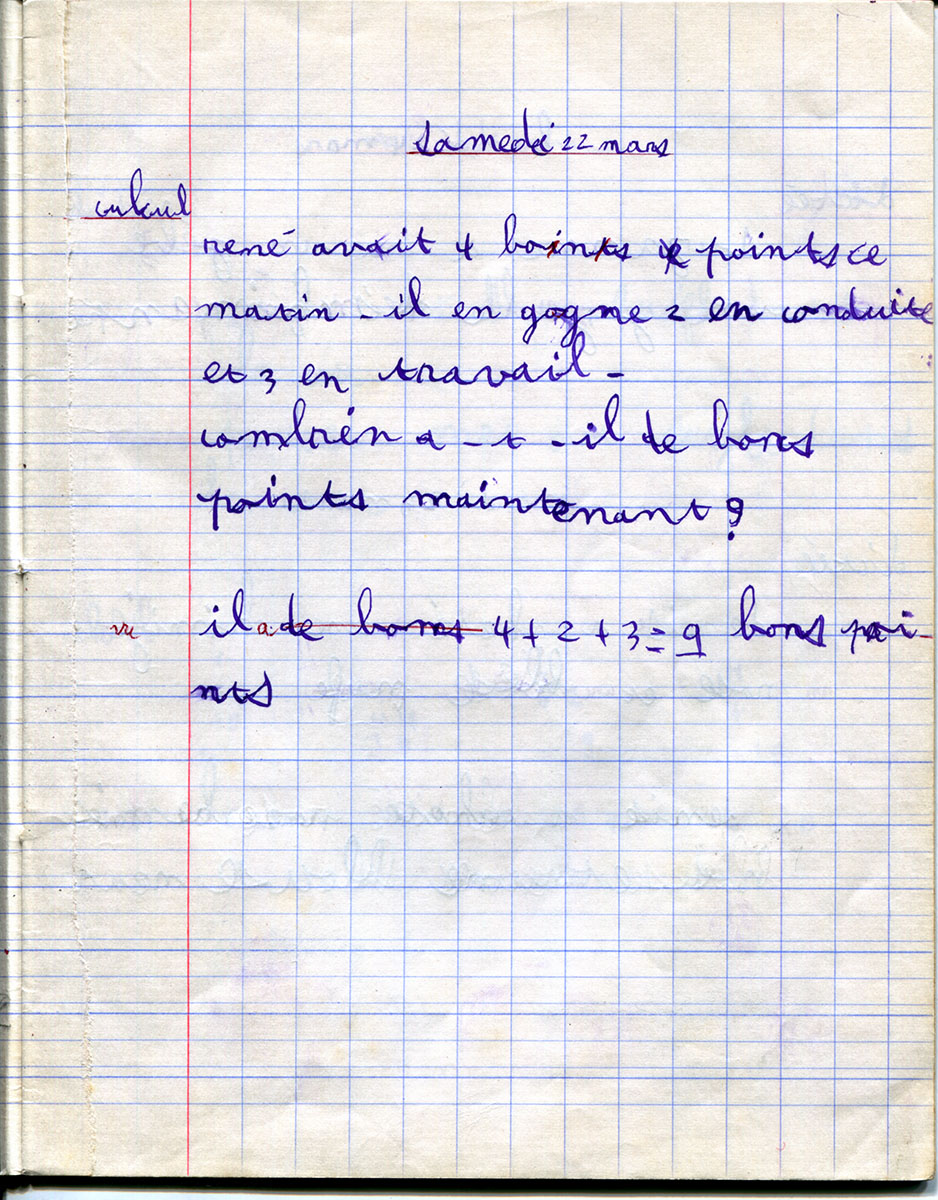 samedi 22 mars
calcul
rené avait 4 boints points ce
matin - il en gagne 2 en conduite
et 3 en travail -
combien a - t - il de bons
points maintenant ?
vu il a de bons 4 + 2 + 3 = 9 bons poi-
nts